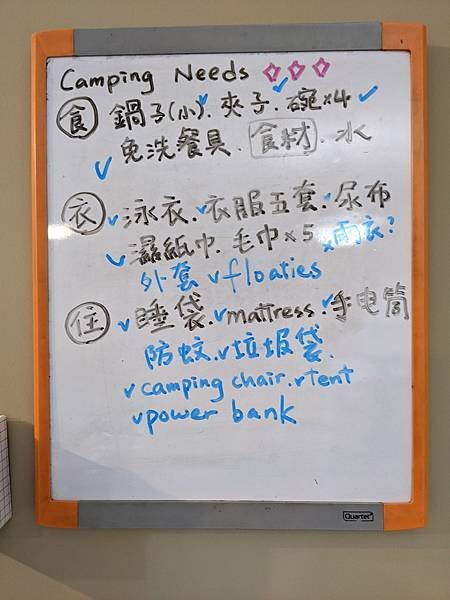 Camping Needs
食 鍋子(小). 夾子. 碗x4
免洗餐具. 食材. 水
衣 泳衣. 衣服五套. 尿布
濕紙巾. 毛巾x5 雨衣?
外套 floaties
住 睡袋. mattress. 手电筒
防蚊. 垃圾袋.
camping chair. tent
power bank
Quartet